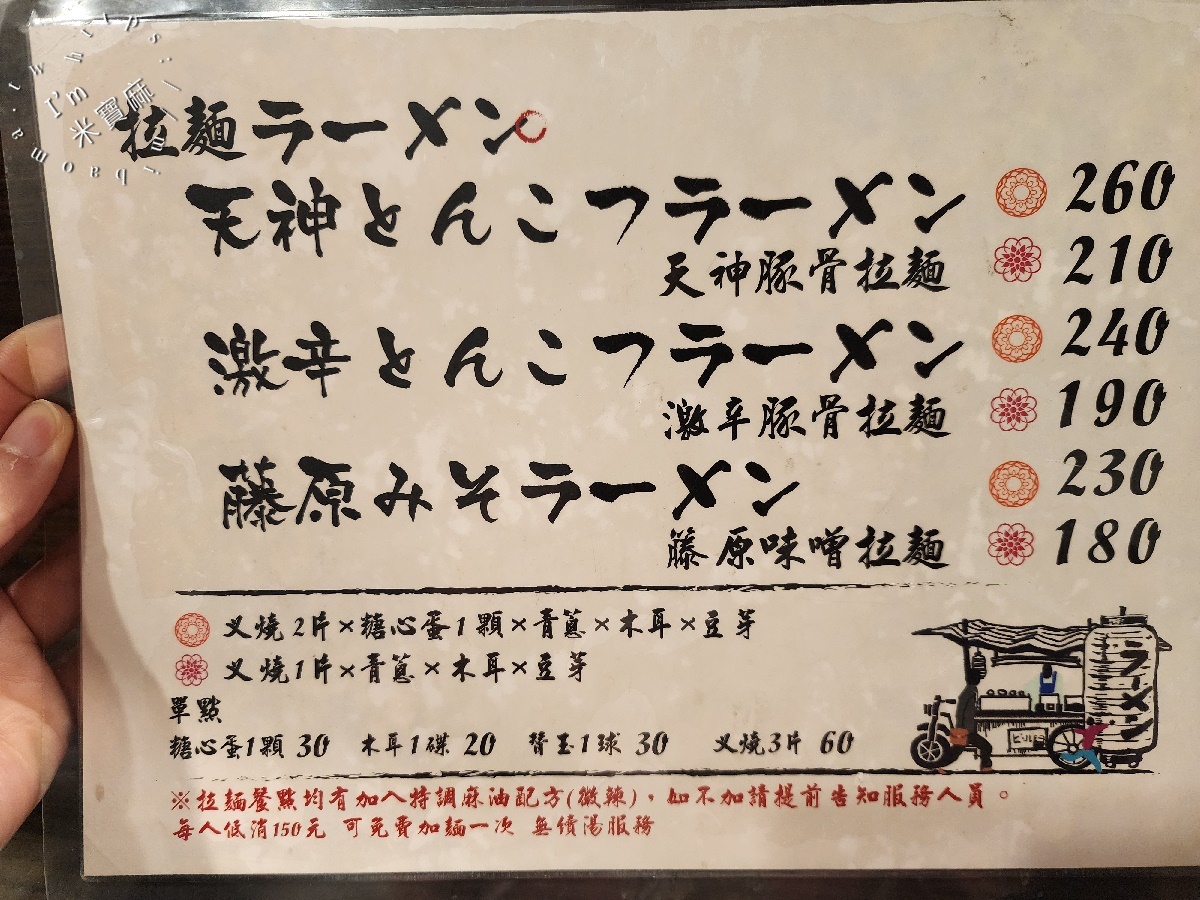 I'm 米寶麻
拉麵ラーメン
天神とんこつラーメン 260
天神豚骨拉麵 210
激辛とんこつラーメン 240
激辛豚骨拉麵 190
藤原みそラーメン 230
藤原味噌拉麵 180
叉燒2片×糖心蛋1顆×青蔥×木耳×豆芽
叉燒1片×青蔥×木耳×豆芽
單點
糖心蛋1顆 30 木耳1碟 20 替玉1球 30 叉燒3片 60
ラーメン
※拉麵餐點均有加入特調麻油配方(微辣)，如不加請提前告知服務人員。
每人低消150元 可免費加麵一次 無續湯服務